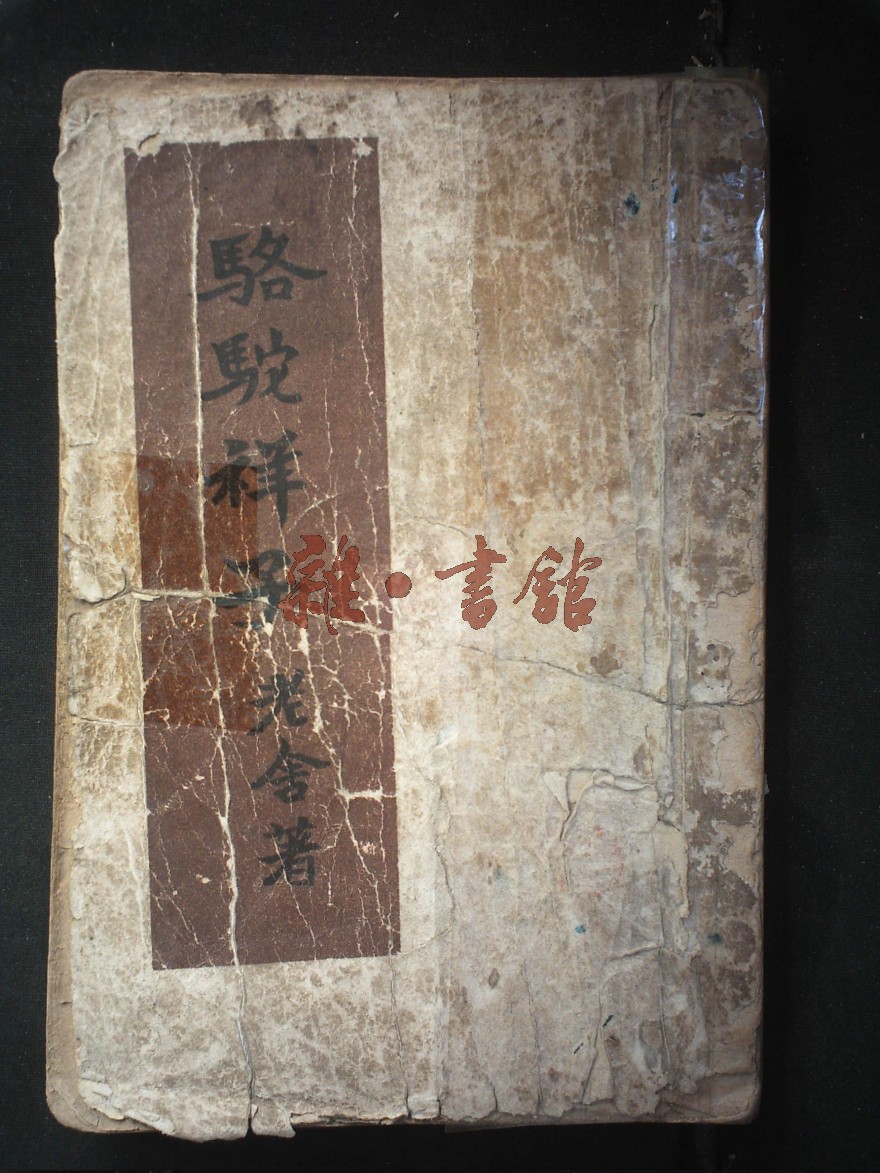 駱駝祥子
老舍著
雜·書館